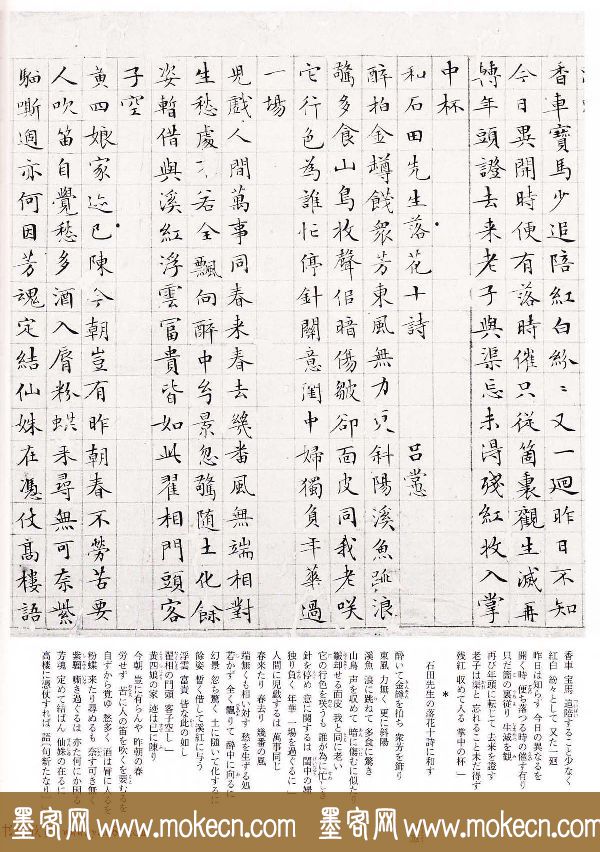 香車寶馬少追陪紅白紛〻又一廻昨日不知
今日異開時便有落時催只從箇裏觀生滅再
轉年頭證去来老子與渠忘未得殘紅收入掌
中杯
和石田先生落花十詩 呂㦂
醉拍金樽餞衆芳東風無力更斜陽溪魚跳浪
驚多食山鳥收聲似暗傷皺卻面皮同我老咲
它行色為誰忙停針關意閨中婦獨負年華過
一場
兒戲人間萬事同春来春去幾番風無端相對
生愁處不若全飄向醉中幻景忽驚随土化餘
姿暫借與溪紅浮雲富貴皆如此翟相門頭客
子空
黄四娘家迹已陳今朝豈有昨朝春不勞苦要
人吹笛自覺愁多酒入脣粉蜨来尋無可奈紫
騮嘶過亦何因芳魂定結仙姝在憑仗髙樓語
香車 宝馬 追陪すること少なく
紅白 紛々として 又た一廻
昨日は知らず 今日の異なるを
開く時 便ち落つる時の催す有り
只だ箇の裏従り 生滅を観
再び年頭に転じて 去来を證す
老子は渠と 忘れること未だ得ず
残紅 収めて入る 掌中の杯」
*
石田先生の落花十詩に和す
酔いて金樽を拍ち 衆芳を餞り
東風 力無く 更に斜陽
溪魚 浪に跳ねて 多食に驚き
山鳥 声を収めて 暗に傷むに似たり
皺却せる面皮 我と同に老い
它の行色を咲う 誰が為に忙しき
針を停め 意に関するは 閨中の婦
独り負く 年華 一場を過ぐるに」
人間に児戯するは 万事同じ
春来たり 春去り 幾番の風
端無くも相い対す 愁を生ずる処
若かず 全く飄りて 酔中に向るに
幻景 忽ち驚く 土に随いて化するに
餘姿 暫く借して 溪紅に与う
浮雲 富貴 皆な此の如し
翟相の門頭 客子空し」
黄四娘の家 迹は已に陳り
今朝 豈に有らんや 昨朝の春
労せず 苦に人の笛を吹くを要むるを
自ずから覚ゆ 愁多く 酒は脣に入るを
粉蝶 来たり尋ぬるも 奈す可き無く
紫騮 嘶き過ぐるは 亦た何にか因る
芳魂 定めて結ばん 仙姝の在るに
高楼に憑仗すれば 語 [句新たなり]
墨客网 www.mokecn.com 墨客网 www.mokecn.com